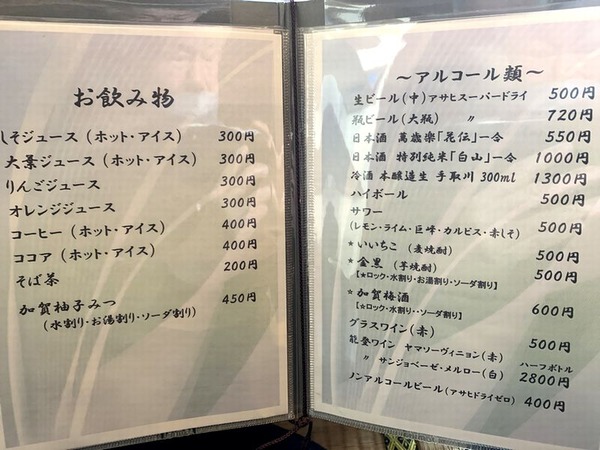 お飲み物
しそジュース（ホット・アイス） 300円
大葉ジュース（ホット・アイス） 300円
りんごジュース 300円
オレンジジュース 300円
コーヒー（ホット・アイス） 400円
ココア（ホット・アイス） 400円
そば茶 200円
加賀柚子みつ 450円
（水割り・お湯割り・ソーダ割り）
～アルコール類～
生ビール（中）アサヒスーパードライ 500円
瓶ビール（大瓶） 〃 720円
日本酒 萬歳楽「花伝」一合 550円
日本酒 特別純米「白山」一合 1000円
冷酒 本醸造生 手取川 300ml 1300円
ハイボール 500円
サワー
（レモン・ライム・巨峰・カルピス・赤しそ） 500円
★いいちこ（麦焼酎） 500円
★金黒（芋焼酎） 500円
【★ロック・水割り・お湯割り・ソーダ割り】
★加賀梅酒 600円
【★ロック・水割り・・ソーダ割り】
グラスワイン（赤） 500円
能登ワイン ヤマソーヴィニョン（赤） ハーフボトル
〃 サンジョベーゼ・メルロー（白） 2800円
ノンアルコールビール（アサヒドライゼロ） 400円